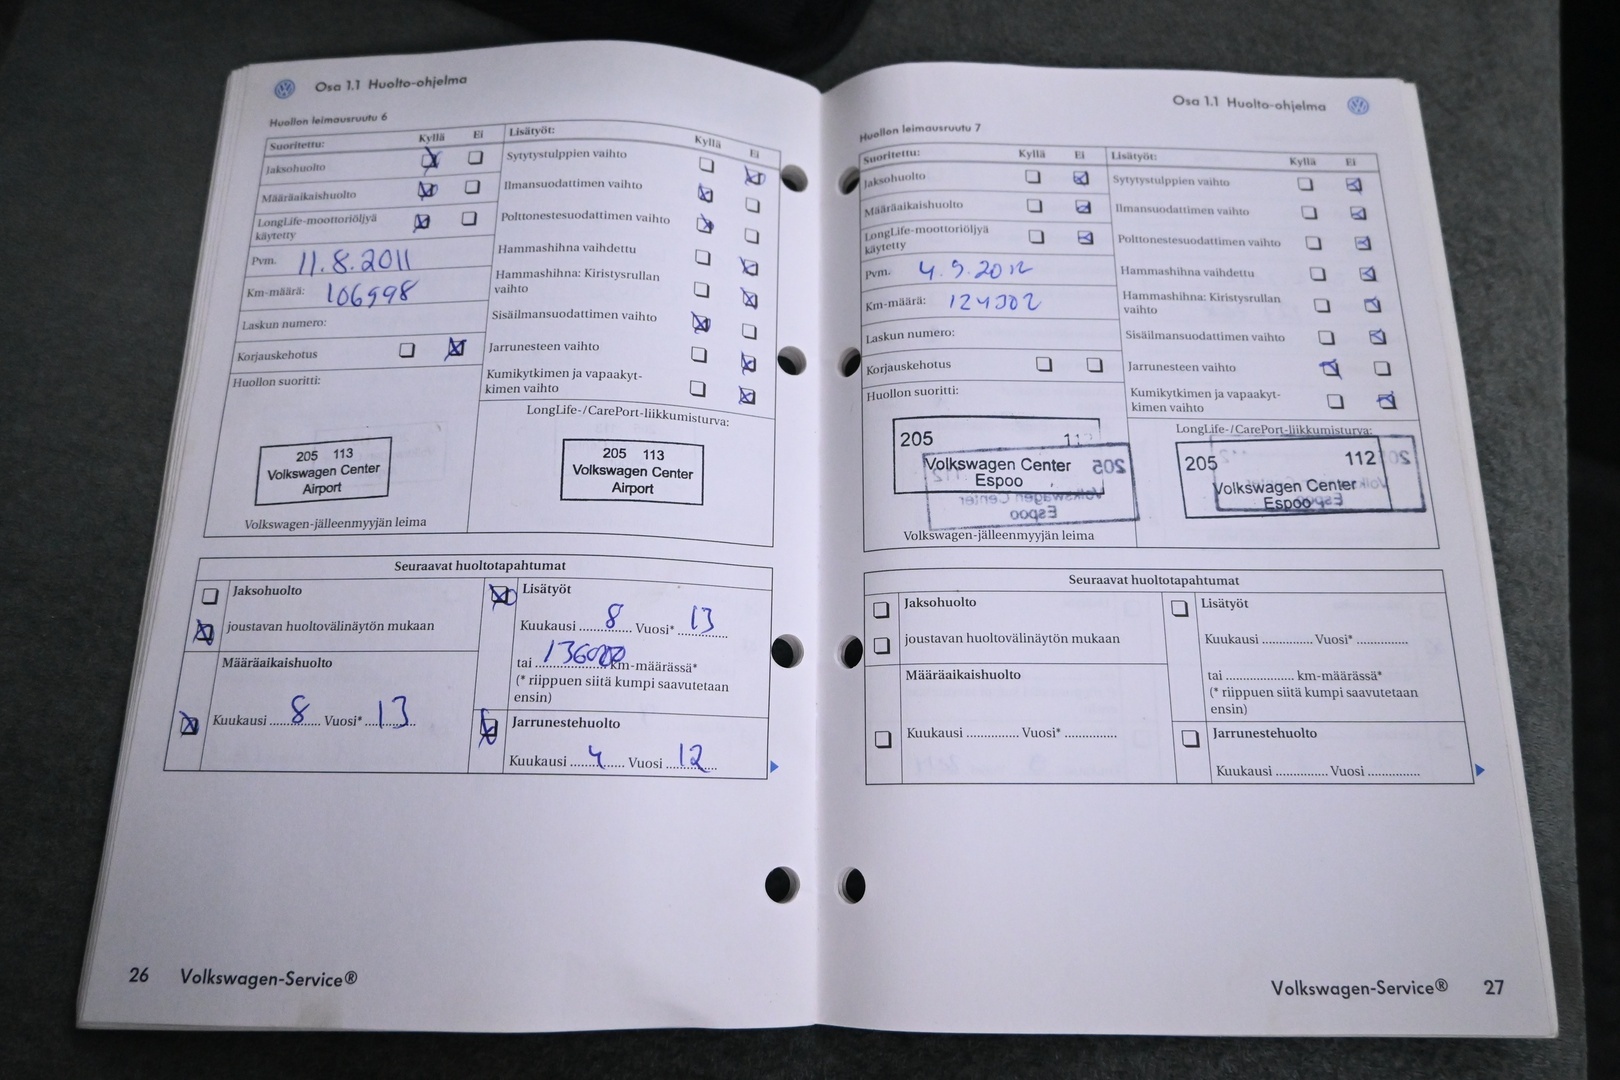 Osa 1.1 Huolto-ohjelma
Huollon leimausruutu 6
Suoritettu: Kyllä Ei
Jaksohuolto
Määräaikaishuolto
LongLife-moottoriöljyä
käytetty
Pvm. 11.8.2011
Km-määrä: 106998
Laskun numero:
Korjauskehotus
Huollon suoritti:
205 113
Volkswagen Center
Airport
Volkswagen-jälleenmyyjän leima
Lisätyöt: Kyllä Ei
Sytytystulppien vaihto
Ilmansuodattimen vaihto
Polttonestesuodattimen vaihto
Hammashihna vaihdettu
Hammashihna: Kiristysrullan
vaihto
Sisäilmansuodattimen vaihto
Jarrunesteen vaihto
Kumikytkimen ja vapaakyt-
kimen vaihto
LongLife-/CarePort-liikkumisturva:
205 113
Volkswagen Center
Airport
Seuraavat huoltotapahtumat
Jaksohuolto
joustavan huoltovälinäytön mukaan
Määräaikaishuolto
Kuukausi 8 Vuosi* 13
Lisätyöt
Kuukausi 8 Vuosi* 13
tai 136000 km-määrässä*
(* riippuen siitä kumpi saavutetaan
ensin)
Jarrunestehuolto
Kuukausi 4 Vuosi 12
26 Volkswagen-Service®
Osa 1.1 Huolto-ohjelma
Huollon leimausruutu 7
Suoritettu: Kyllä Ei
Jaksohuolto
Määräaikaishuolto
LongLife-moottoriöljyä
käytetty
Pvm. 4.9.2012
Km-määrä:
Laskun numero:
Korjauskehotus
Huollon suoritti:
205
Volkswagen Center
Espoo
Volkswagen-jälleenmyyjän leima
Lisätyöt: Kyllä Ei
Sytytystulppien vaihto
Ilmansuodattimen vaihto
Polttonestesuodattimen vaihto
Hammashihna vaihdettu
Hammashihna: Kiristysrullan
vaihto
Sisäilmansuodattimen vaihto
Jarrunesteen vaihto
Kumikytkimen ja vapaakyt-
kimen vaihto
LongLife-/CarePort-liikkumisturva:
205 112
Volkswagen Center
Espoo
Seuraavat huoltotapahtumat
Jaksohuolto
joustavan huoltovälinäytön mukaan
Määräaikaishuolto
Kuukausi ............... Vuosi* ...............
Lisätyöt
Kuukausi ............... Vuosi* ...............
tai .................... km-määrässä*
(* riippuen siitä kumpi saavutetaan
ensin)
Jarrunestehuolto
Kuukausi ............... Vuosi ...............
Volkswagen-Service® 27